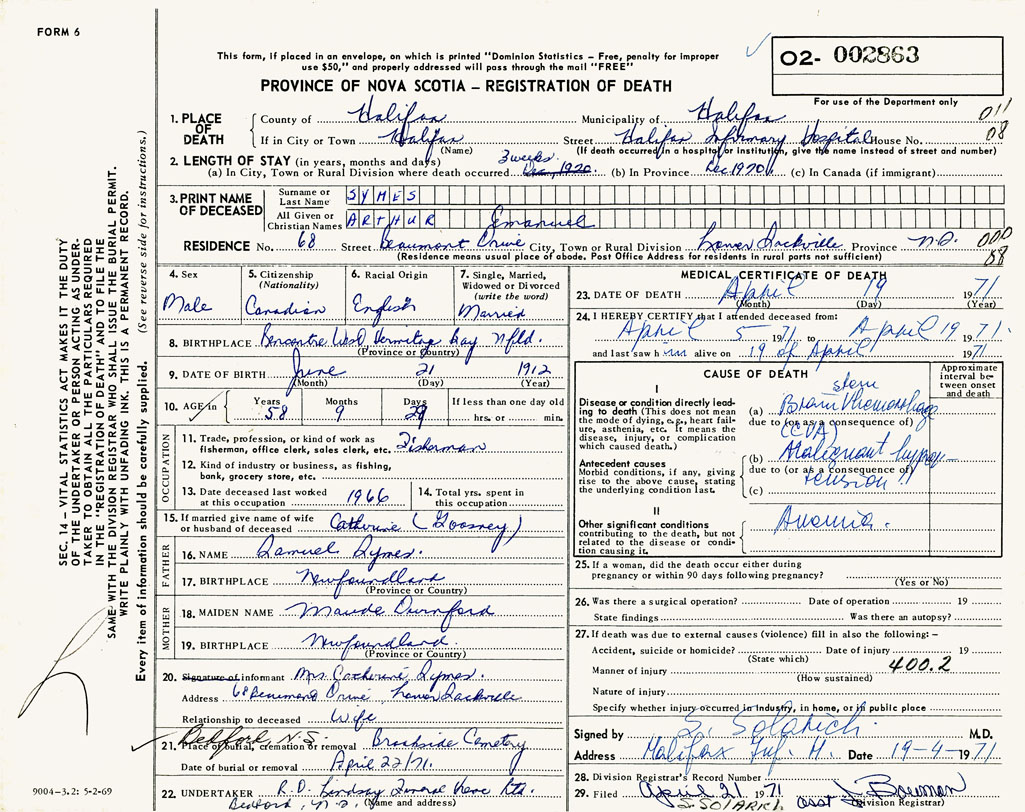 FORM 6
This form, if placed in an envelope, on which is printed "Dominion Statistics – Free, penalty for improper
use $50," and properly addressed will pass through the mail "FREE"
O2- 002863
PROVINCE OF NOVA SCOTIA – REGISTRATION OF DEATH
For use of the Department only
011
08
1. PLACE OF DEATH
County of Halifax Municipality of Halifax
If in City or Town Halifax Street Halifax Infirmary Hospital House No.
(Name) (If death occurred in a hospital or institution, give the name instead of street and number)
2. LENGTH OF STAY (in years, months and days) 3 weeks
(a) In City, Town or Rural Division where death occurred Dec, 1970 (b) In Province Dec 1970 (c) In Canada (if immigrant)
3. PRINT NAME OF DECEASED
Surname or Last Name SYMES
All Given or Christian Names ARTHUR Emanuel
RESIDENCE No. 68 Street Beaumont Drive City, Town or Rural Division Lower Sackville Province N.S.
(Residence means usual place of abode. Post Office Address for residents in rural parts not sufficient)
000
08
4. Sex
Male
5. Citizenship
(Nationality)
Canadian
6. Racial Origin
English
7. Single, Married,
Widowed or Divorced
(write the word)
Married
8. BIRTHPLACE Rencontre West, Hermitage Bay Nfld.
(Province or Country)
9. DATE OF BIRTH June 21 1912
(Month) (Day) (Year)
10. AGE in
Years 58
Months 9
Days 29
If less than one day old
hrs. or min.
OCCUPATION
11. Trade, profession, or kind of work as
fisherman, office clerk, sales clerk, etc. Fisherman
12. Kind of industry or business, as fishing,
bank, grocery store, etc.
13. Date deceased last worked
at this occupation 1966
14. Total yrs. spent in
this occupation
15. If married give name of wife
or husband of deceased Catherine (Goosney)
FATHER
16. NAME Samuel Symes.
17. BIRTHPLACE Newfoundland
(Province or Country)
MOTHER
18. MAIDEN NAME Maude Durnford
19. BIRTHPLACE Newfoundland.
(Province or Country)
20. Signature of informant Mrs Catherine Symes.
Address 68 Beaumont Drive Lower Sackville
Relationship to deceased Wife
Bedford N.S.
21. Place of burial, cremation or removal Brookside Cemetery
Date of burial or removal April 22/71.
22. UNDERTAKER R.D. Lindsay Funeral Home Ltd.
Bedford, N.S. (Name and address)
MEDICAL CERTIFICATE OF DEATH
23. DATE OF DEATH April 19 1971
(Month) (Day) (Year)
24. I HEREBY CERTIFY that I attended deceased from:
April 5 1971 to April 19 1971.
and last saw him alive on 19 of April 1971
CAUSE OF DEATH
Approximate
interval be-
tween onset
and death
I
Disease or condition directly lead-
ing to death (This does not mean
the mode of dying, e.g., heart fail-
ure, asthenia, etc. It means the
disease, injury, or complication
which caused death.)
stem
(a) Brain hemorrhage
due to (or as a consequence of)
(CVA)
Antecedent causes
Morbid conditions, if any, giving
rise to the above cause, stating
the underlying condition last.
(b) Malignant hyper-
due to (or as a consequence of)
tension !!
(c)
II
Other significant conditions
contributing to the death, but not
related to the disease or condi-
tion causing it.
Anemia.
25. If a woman, did the death occur either during
pregnancy or within 90 days following pregnancy?
(Yes or No)
26. Was there a surgical operation? Date of operation 19
State findings Was there an autopsy?
27. If death was due to external causes (violence) fill in also the following: –
Accident, suicide or homicide? Date of injury 19
(State which)
Manner of injury 400.2
(How sustained)
Nature of injury
Specify whether injury occurred in Industry, in home, or in public place
Signed by M.D.
Address Halifax Inf. H. Date 19-4-1971
28. Division Registrar's Record Number
29. Filed April 21 1971 asst J. Bowman
Division Registrar
SEC. 14 – VITAL STATISTICS ACT MAKES IT THE DUTY
OF THE UNDERTAKER OR PERSON ACTING AS UNDER-
TAKER TO OBTAIN ALL THE PARTICULARS REQUIRED
IN THE "REGISTRATION OF DEATH" AND TO FILE THE
SAME WITH THE DIVISION REGISTRAR WHO SHALL ISSUE THE BURIAL PERMIT.
WRITE PLAINLY WITH UNFADING INK. THIS IS A PERMANENT RECORD.
Every item of information should be carefully supplied. (See reverse side for instructions.)
9004-3.2: 5-2-69